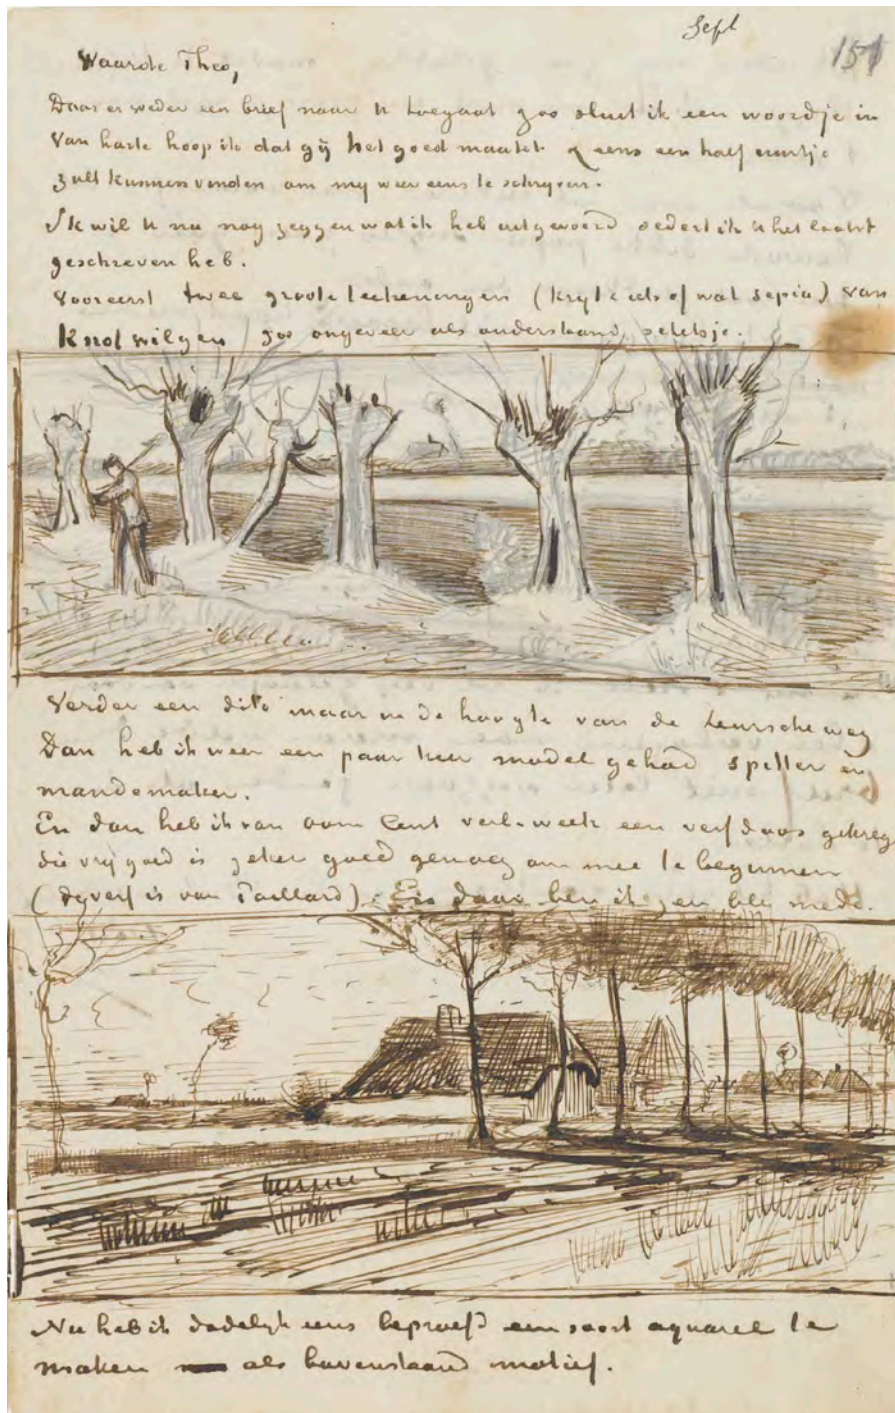 Sept
151
Waarde Theo,
Daar er weder een brief naar U toegaat zoo sluit ik een woordje in
Van harte hoop ik dat gij het goed maakt & eens een half uurtje
zult kunnen vinden om mij weer eens te schrijven.
Ik wil U nu nog zeggen wat ik heb uitgevoerd sedert ik U het laatst
geschreven heb.
Vooreerst twee groote teekeningen (kryt & iets of wat sepia) van
Knotwilgen zoo ongeveer als onderstaand schetsje.
Verder een dito maar in de hoogte van de Leursche weg
Dan heb ik weer een paar keer model gehad spitter en
mandemaker.
En dan heb ik van oom Cent verl. week een verfdoos gekreg
die vrij goed is zeker goed genoeg om mee te beginnen
(de verf is van Paillard). En daar ben ik zeer blij mede.
Nu heb ik dadelijk eens beproefd een soort aquarel te
maken als bovenstaand motief.